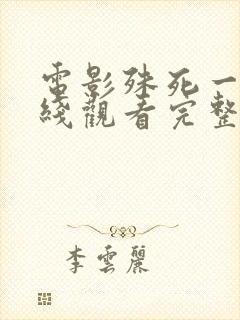 電影殊死一
綫觀看完整
李雲麗